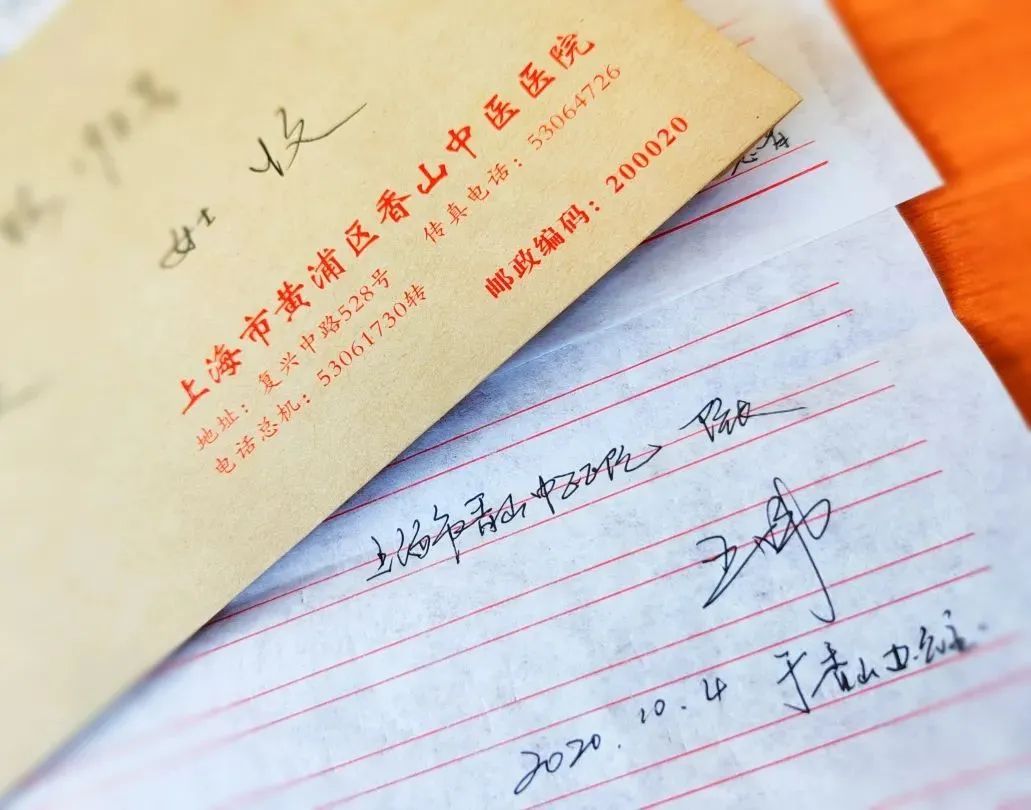 女士 收
上海市黄浦区香山中医医院
地址：复兴中路528号
传真电话：53064726
电话总机：53061730转
邮政编码：200020
上海市香山中医医院 院长
王
2020.10.4 于香山办公室.